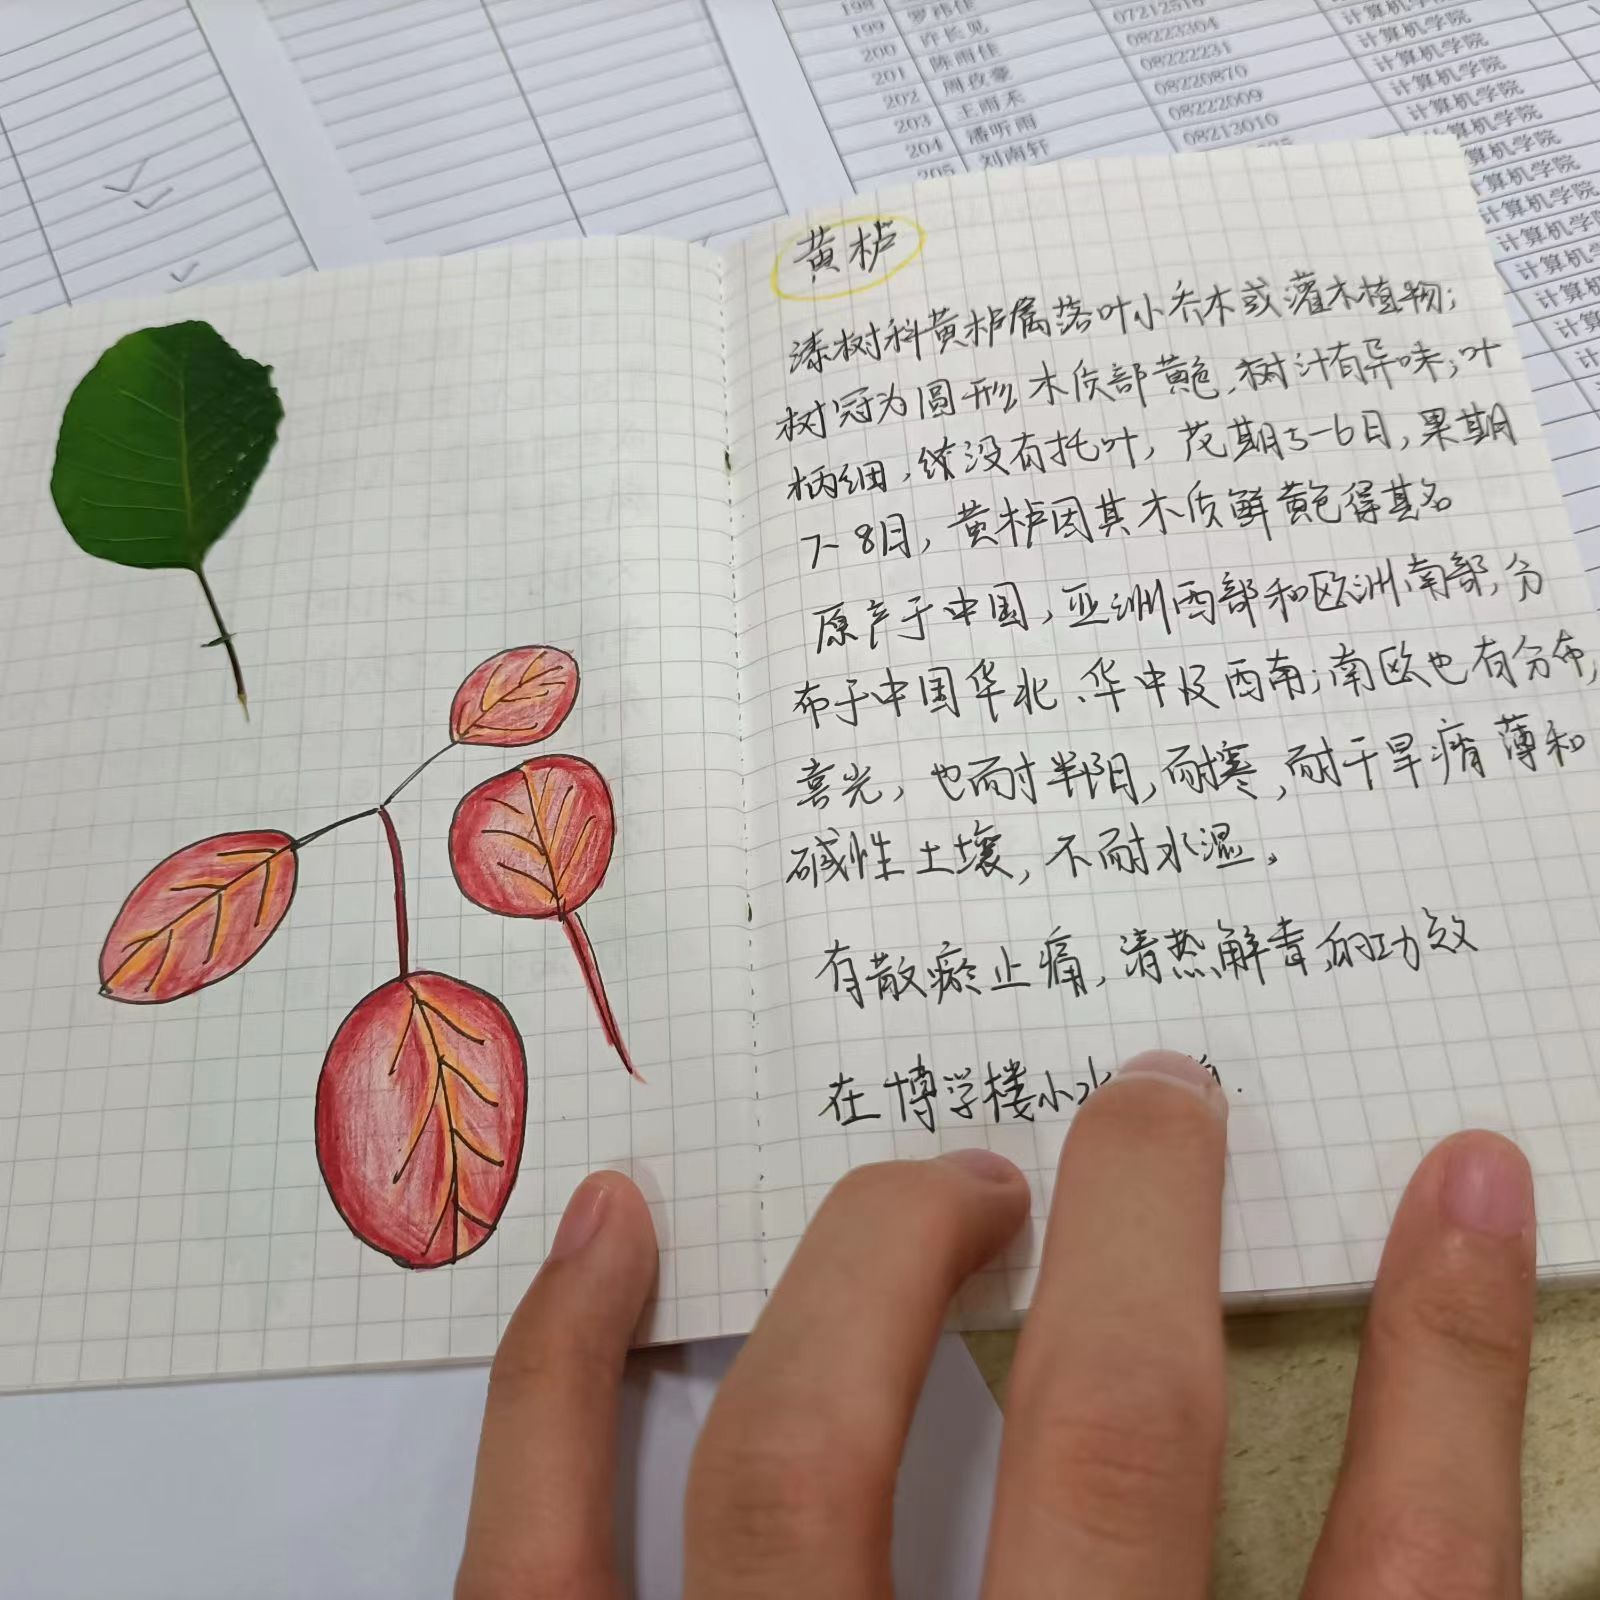 198 罗祎佳 07212516 计算机学院
199 许长见 08223304 计算机学院
200 陈雨佳 08222231 计算机学院
201 08220870 计算机学院
202 王雨禾 08222009 计算机学院
203 潘昕雨 08213010 计算机学院
204 刘南轩 计算机学院
205 计算机学院
计算机学院
计算机学院
计算机学院
黄栌
漆树科黄栌属落叶小乔木或灌木植物;
树冠为圆形 木质部黄色,树汁有异味;叶
柄细,没有托叶,花期5-6月,果期
7-8月,黄栌因其木质鲜黄色得其名
原产于中国,亚洲西部和欧洲南部,分
布于中国华北、华中及西南;南欧也有分布,
喜光,也耐半阴,耐寒,耐干旱瘠薄和
碱性土壤,不耐水湿。
有散瘀止痛,清热解毒的功效
在博学楼小水